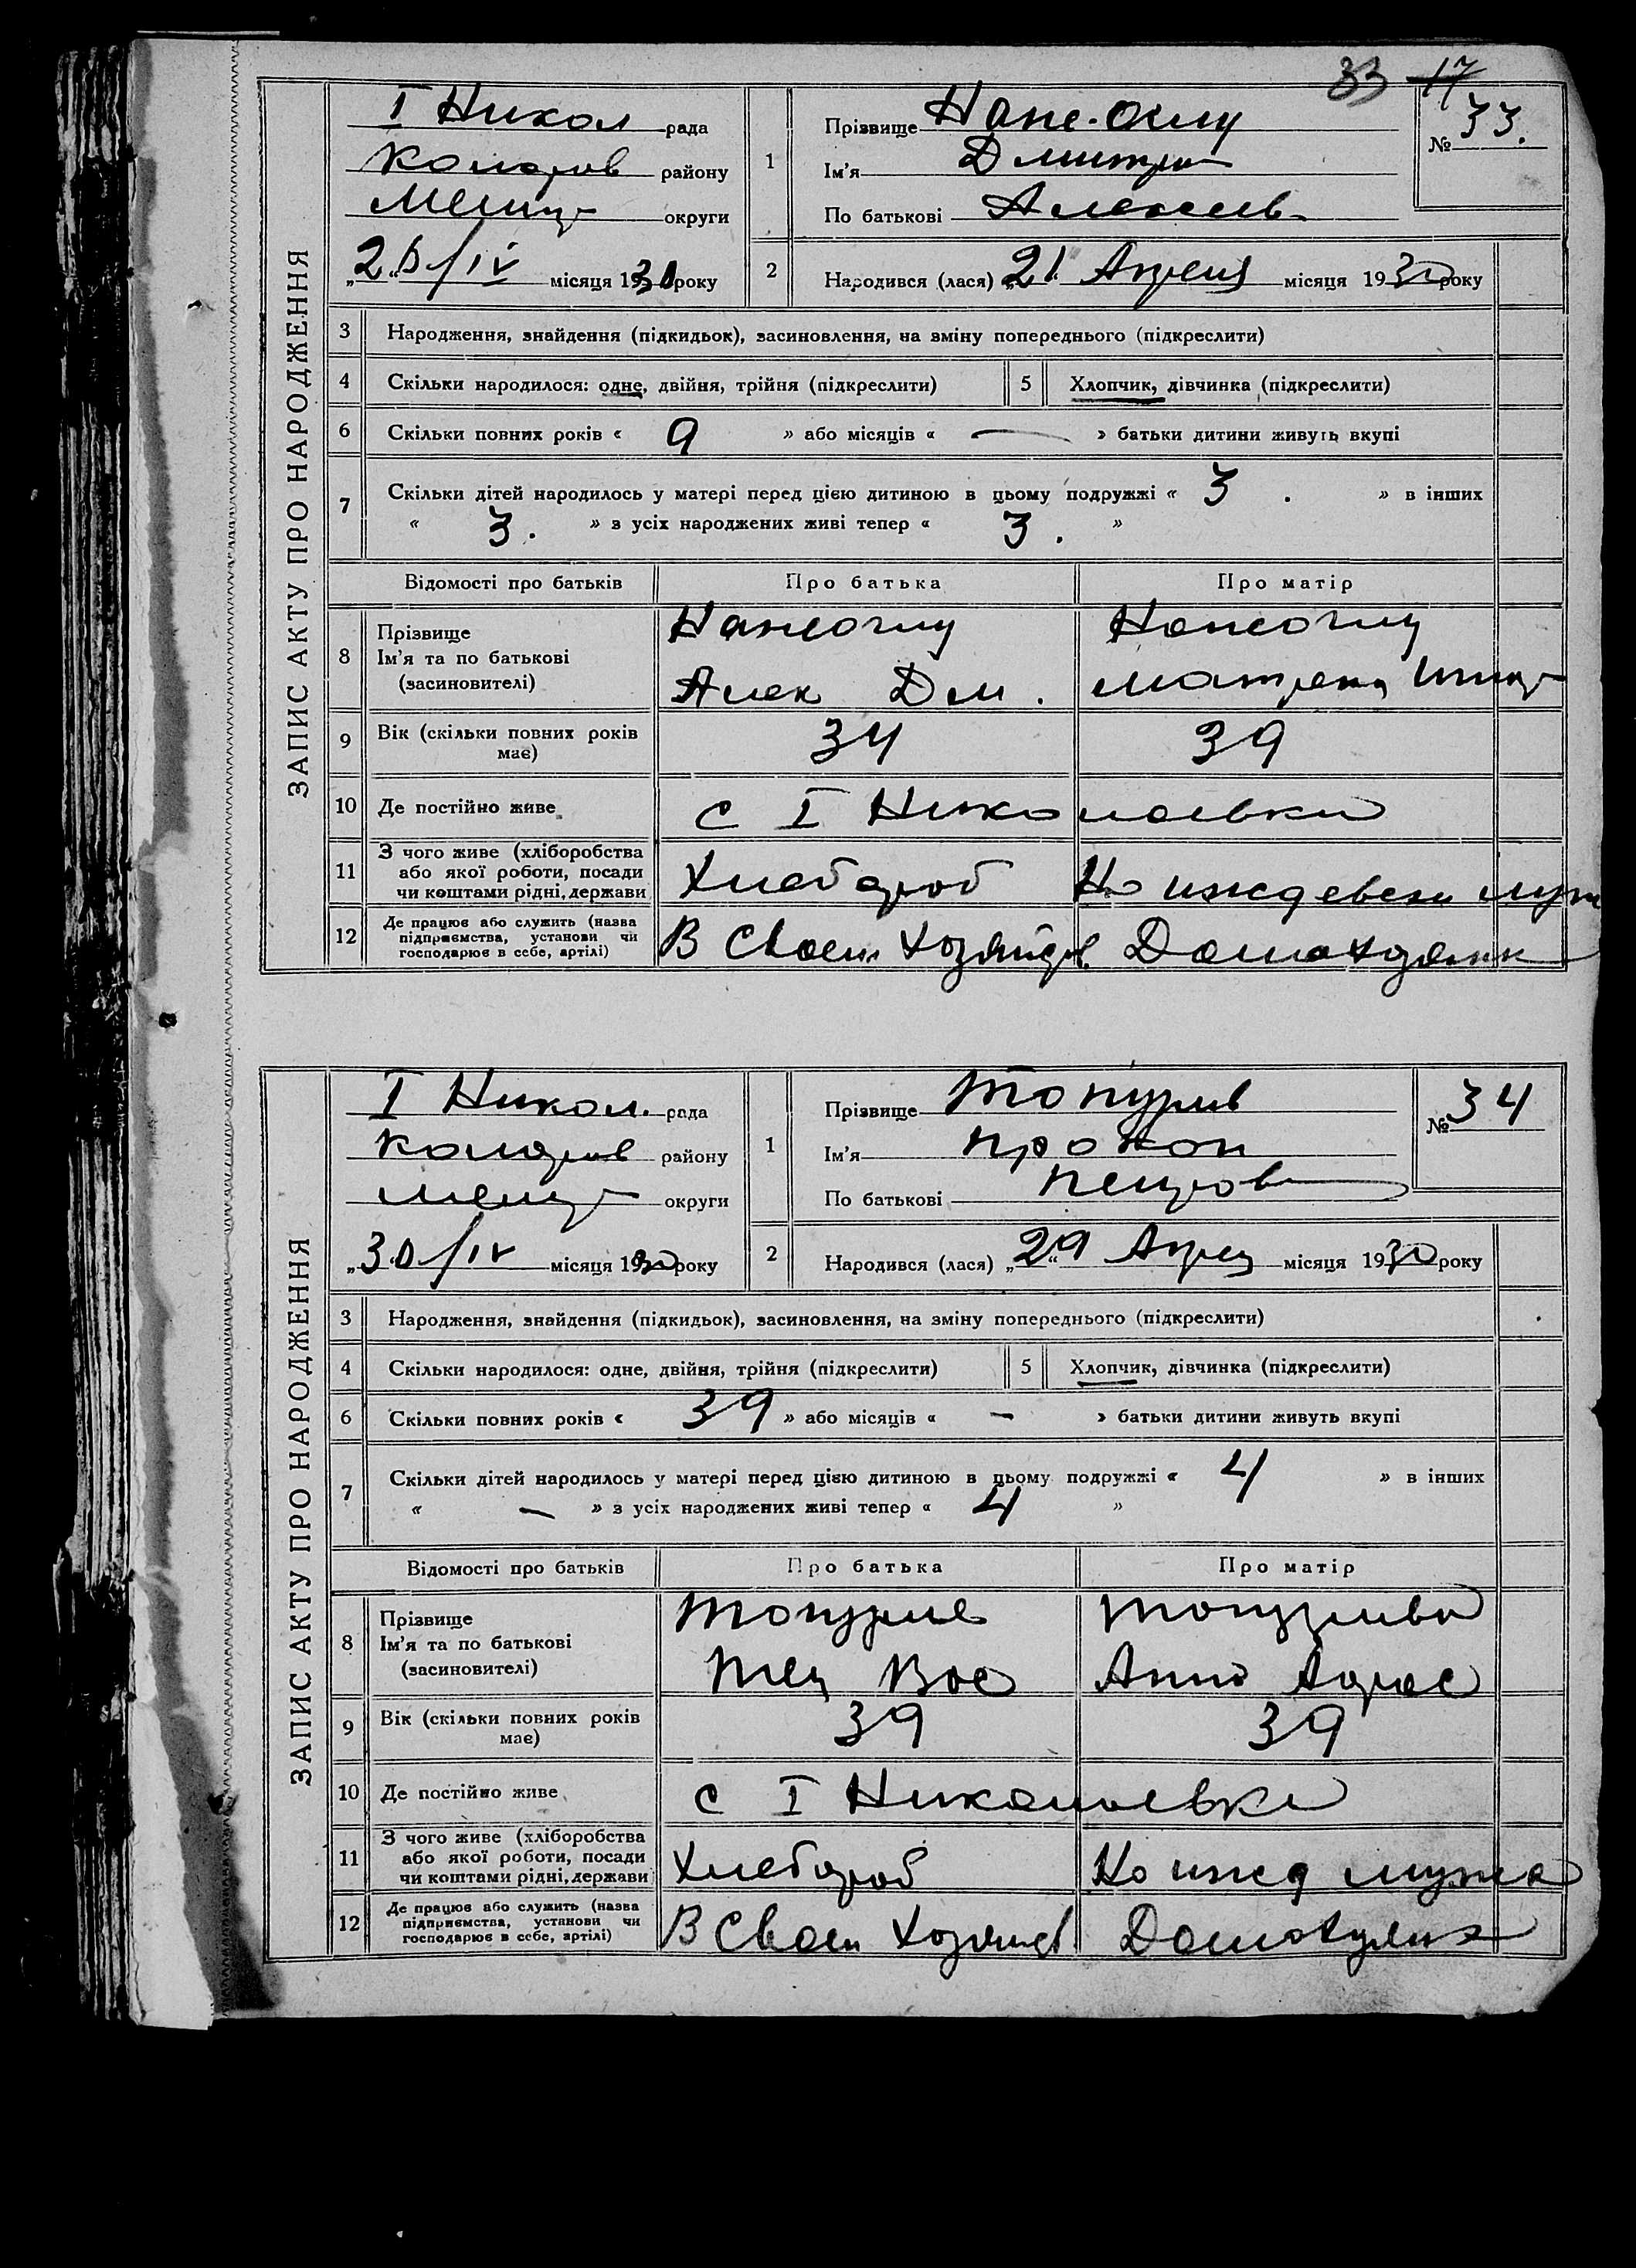 33 17
I Никол рада
Коларов району
Мелит округи
місяця 1930 року
1
Прізвище
Ім'я Дмитри
По батькові Алексеев
№ 33.
2
Народився (лася) „21“ Апреля місяця 1930 року
ЗАПИС АКТУ ПРО НАРОДЖЕННЯ
3 Народження, знайдення (підкидьок), засиновлення, на зміну попереднього (підкреслити)
4 Скільки народилося: одне, двійня, трійня (підкреслити) 5 Хлопчик, дівчинка (підкреслити)
6 Скільки повних років « 9 » або місяців « — » батьки дитини живуть вкупі
7 Скільки дітей народилось у матері перед цією дитиною в цьому подружжі « 3 . » в інших
« 3. » з усіх народжених живі тепер « 3. »
Відомості про батьків Про батька Про матір
8 Прізвище
Ім'я та по батькові
(засиновителі)
Алек Дм. Матрена
9 Вік (скільки повних років має) 34 39
10 Де постійно живе с I Николаевки
11 З чого живе (хліборобства або якої роботи, посади чи коштами рідні, держави Хлебороб На иждевени мужа
12 Де працює або служить (назва підприємства, установи чи господарює в себе, артілі) В своем хозяйств Домохозяик
I Никол. рада
Коларов району
Мелит округи
„30/IV місяця 1930 року
1
Прізвище Топузлив
Ім'я Прокоп
По батькові Петров
№ 34
2
Народився (лася) „29“ Апрел місяця 1930 року
ЗАПИС АКТУ ПРО НАРОДЖЕННЯ
3 Народження, знайдення (підкидьок), засиновлення, на зміну попереднього (підкреслити)
4 Скільки народилося: одне, двійня, трійня (підкреслити) 5 Хлопчик, дівчинка (підкреслити)
6 Скільки повних років « 39 » або місяців « — » батьки дитини живуть вкупі
7 Скільки дітей народилось у матері перед цією дитиною в цьому подружжі « 4 » в інших
« — » з усіх народжених живі тепер « 4 »
Відомості про батьків Про батька Про матір
8 Прізвище
Ім'я та по батькові
(засиновителі)
Пет Вас Анна
9 Вік (скільки повних років має) 39 39
10 Де постійно живе с I Николаевки
11 З чого живе (хліборобства або якої роботи, посади чи коштами рідні, держави Хлебороб На ижд мужа
12 Де працює або служить (назва підприємства, установи чи господарює в себе, артілі) В своем хозяйств